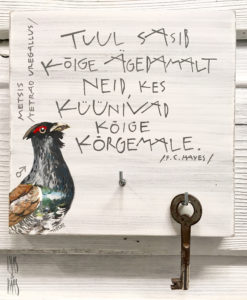 TUUL SASIB
KÕIGE ÄGEDAMALT
NEID, KES
KÜÜNIVAD
KÕIGE
KÕRGEMALE.
/F. C. HAYES/
METSIS
/TETRAO UROGALLUS/